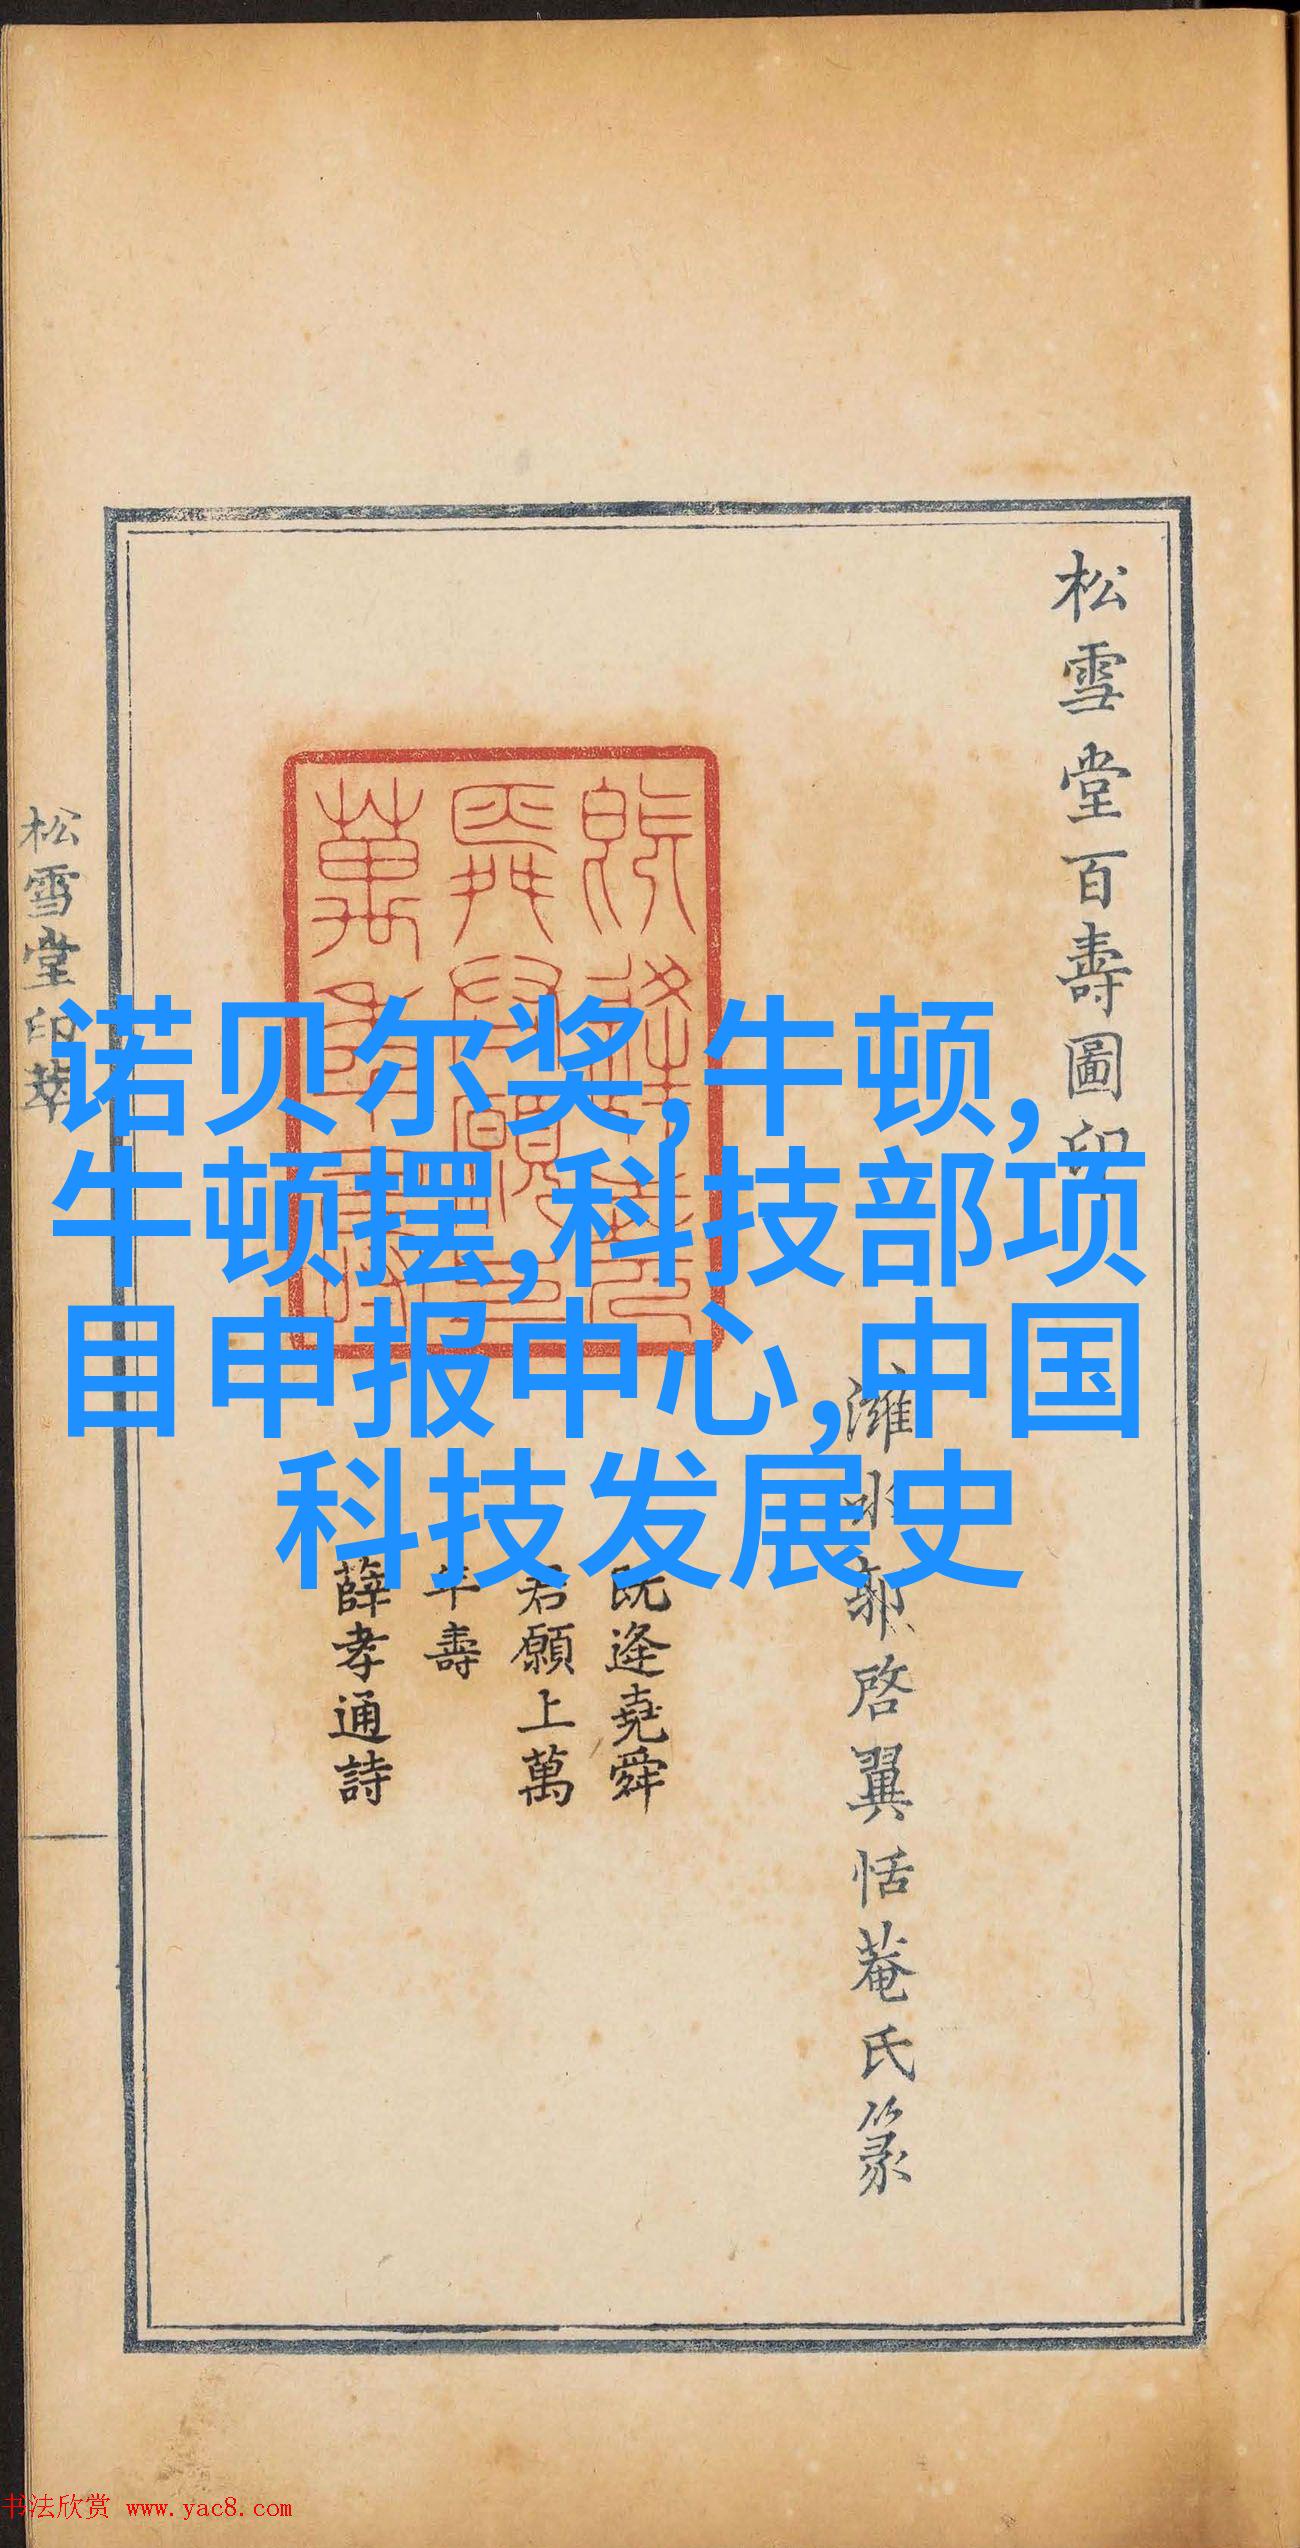 松雪堂百壽圖印
濰水郭啓翼恬菴氏篆
既逢堯舜
君願上萬
年壽
薛孝通詩
松雪堂印萃
诺贝尔奖,牛顿,
牛顿摆,科技部项
目申报中心,中国
科技发展史
书法欣赏 www.yac8.com